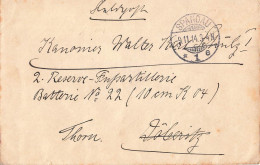 Feldpost
SPANDAU
9.11.14.3-4N
* 1 c
Kanonier Walter
2. Reserve-Fußartillerie
Batterie No 22 (10 cm K 04)
Thorn Döberitz